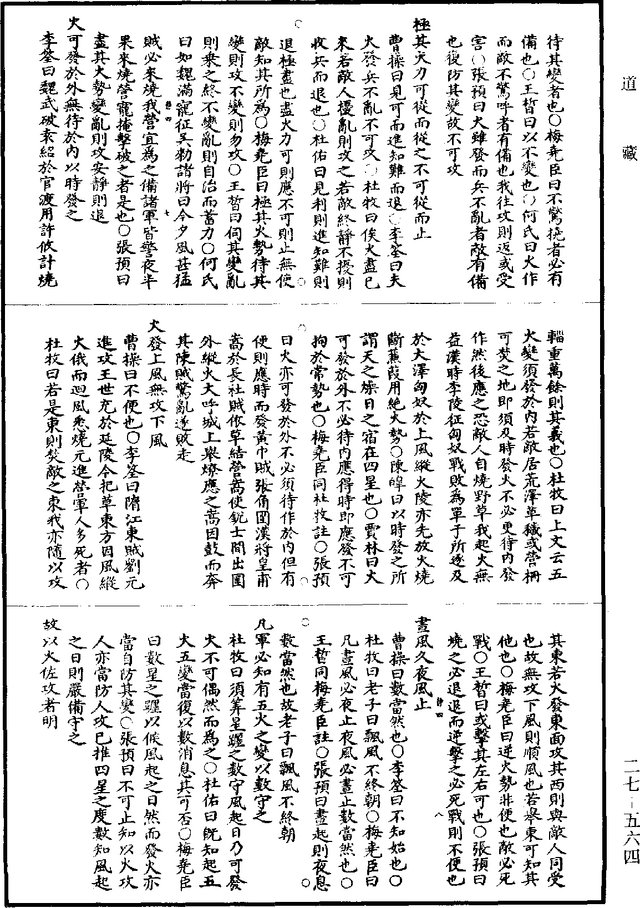 道藏
待其變者也○梅堯臣曰不驚撓者必有
備也○王晳曰以不變也○何氏曰火作
而敵不驚呼者有備也我往攻則返或受
害○張預曰火雖發而兵不亂者敵有備
也復防其變故不可攻
極其火力可從而從之不可從而止
曹操曰見可而進知難而退○李筌曰夫
火發兵不亂不可攻○杜牧曰俟火盡已
來若敵人擾亂則攻之若敵終靜不擾則
收兵而退也○杜佑曰見利則進知難則
退極盡也盡火力可則應不可則止無使
敵知其所為○梅堯臣曰極其火勢待其
變則攻不變則勿攻○王晳曰伺其變亂
則乘之終不變亂則自治而蓄力○何氏
曰如魏滿寵征吳勑諸將曰今夕風甚猛
賊必來燒我營宜為之備諸軍皆警夜半
果來燒營寵掩擊破之者是也○張預曰
盡其火勢變亂則攻安靜則退
火可發於外無待於內以時發之
李筌曰魏武破袁紹於官渡用許攸計燒
輜重萬餘則其義也○杜牧曰上文云五
火變須發於內若敵居荒澤草穢或營柵
可焚之地即須及時發火不必更待內發
作然後應之恐敵人自燒野草我起火無
益漢時李陵征匈奴戰敗為單于所逐及
於大澤匈奴於上風縱火陵亦先放火燒
斷蒹葭用絶火勢○陳皥曰以時發之所
謂天之燥日之宿在四星也○賈林曰火
可發於外不必待內應得時即應發不可
拘於常勢也○梅堯臣同杜牧註○張預
曰火亦可發於外不必須待作於內但有
便則應時而發黃巾賊張角圍漢將皇甫
嵩於長社賊依草結營嵩使銳士間出圍
外縱火大呼城上舉燎應之嵩因鼓而奔
其陳賊驚亂遂敗走
火發上風無攻下風
曹操曰不便也○李筌曰隋江東賊劉元
進攻王世充於延陵令把草東方因風縱
火俄而迴風悉燒元進營軍人多死者○
杜牧曰若是東則焚敵之東我亦隨以攻
其東若火發東面攻其西則與敵人同受
也故無攻下風則順風也若舉東可知其
他也○梅堯臣曰逆火勢非便也敵必死
戰○王晳曰或擊其左右可也○張預曰
燒之必退退而逆擊之必死戰則不便也
晝風久夜風止
曹操曰數當然也○李筌曰不知始也○
杜牧曰老子曰飄風不終朝○梅堯臣曰
凡晝風必夜止夜風必晝止數當然也○
王晳同梅堯臣註○張預曰晝起則夜息
數當然也故老子曰飄風不終朝
凡軍必知有五火之變以數守之
杜牧曰須筭星躔之數守風起日乃可發
火不可偶然而為之○杜佑曰既知起五
火五變當復以數消息其可否○梅堯臣
曰數星之躔以候風起之日然而發火亦
當自防其變○張預曰不可止知以火攻
人亦當防人攻己推四星之度數知風起
之日則嚴備守之
故以火佐攻者明
二七-五六四